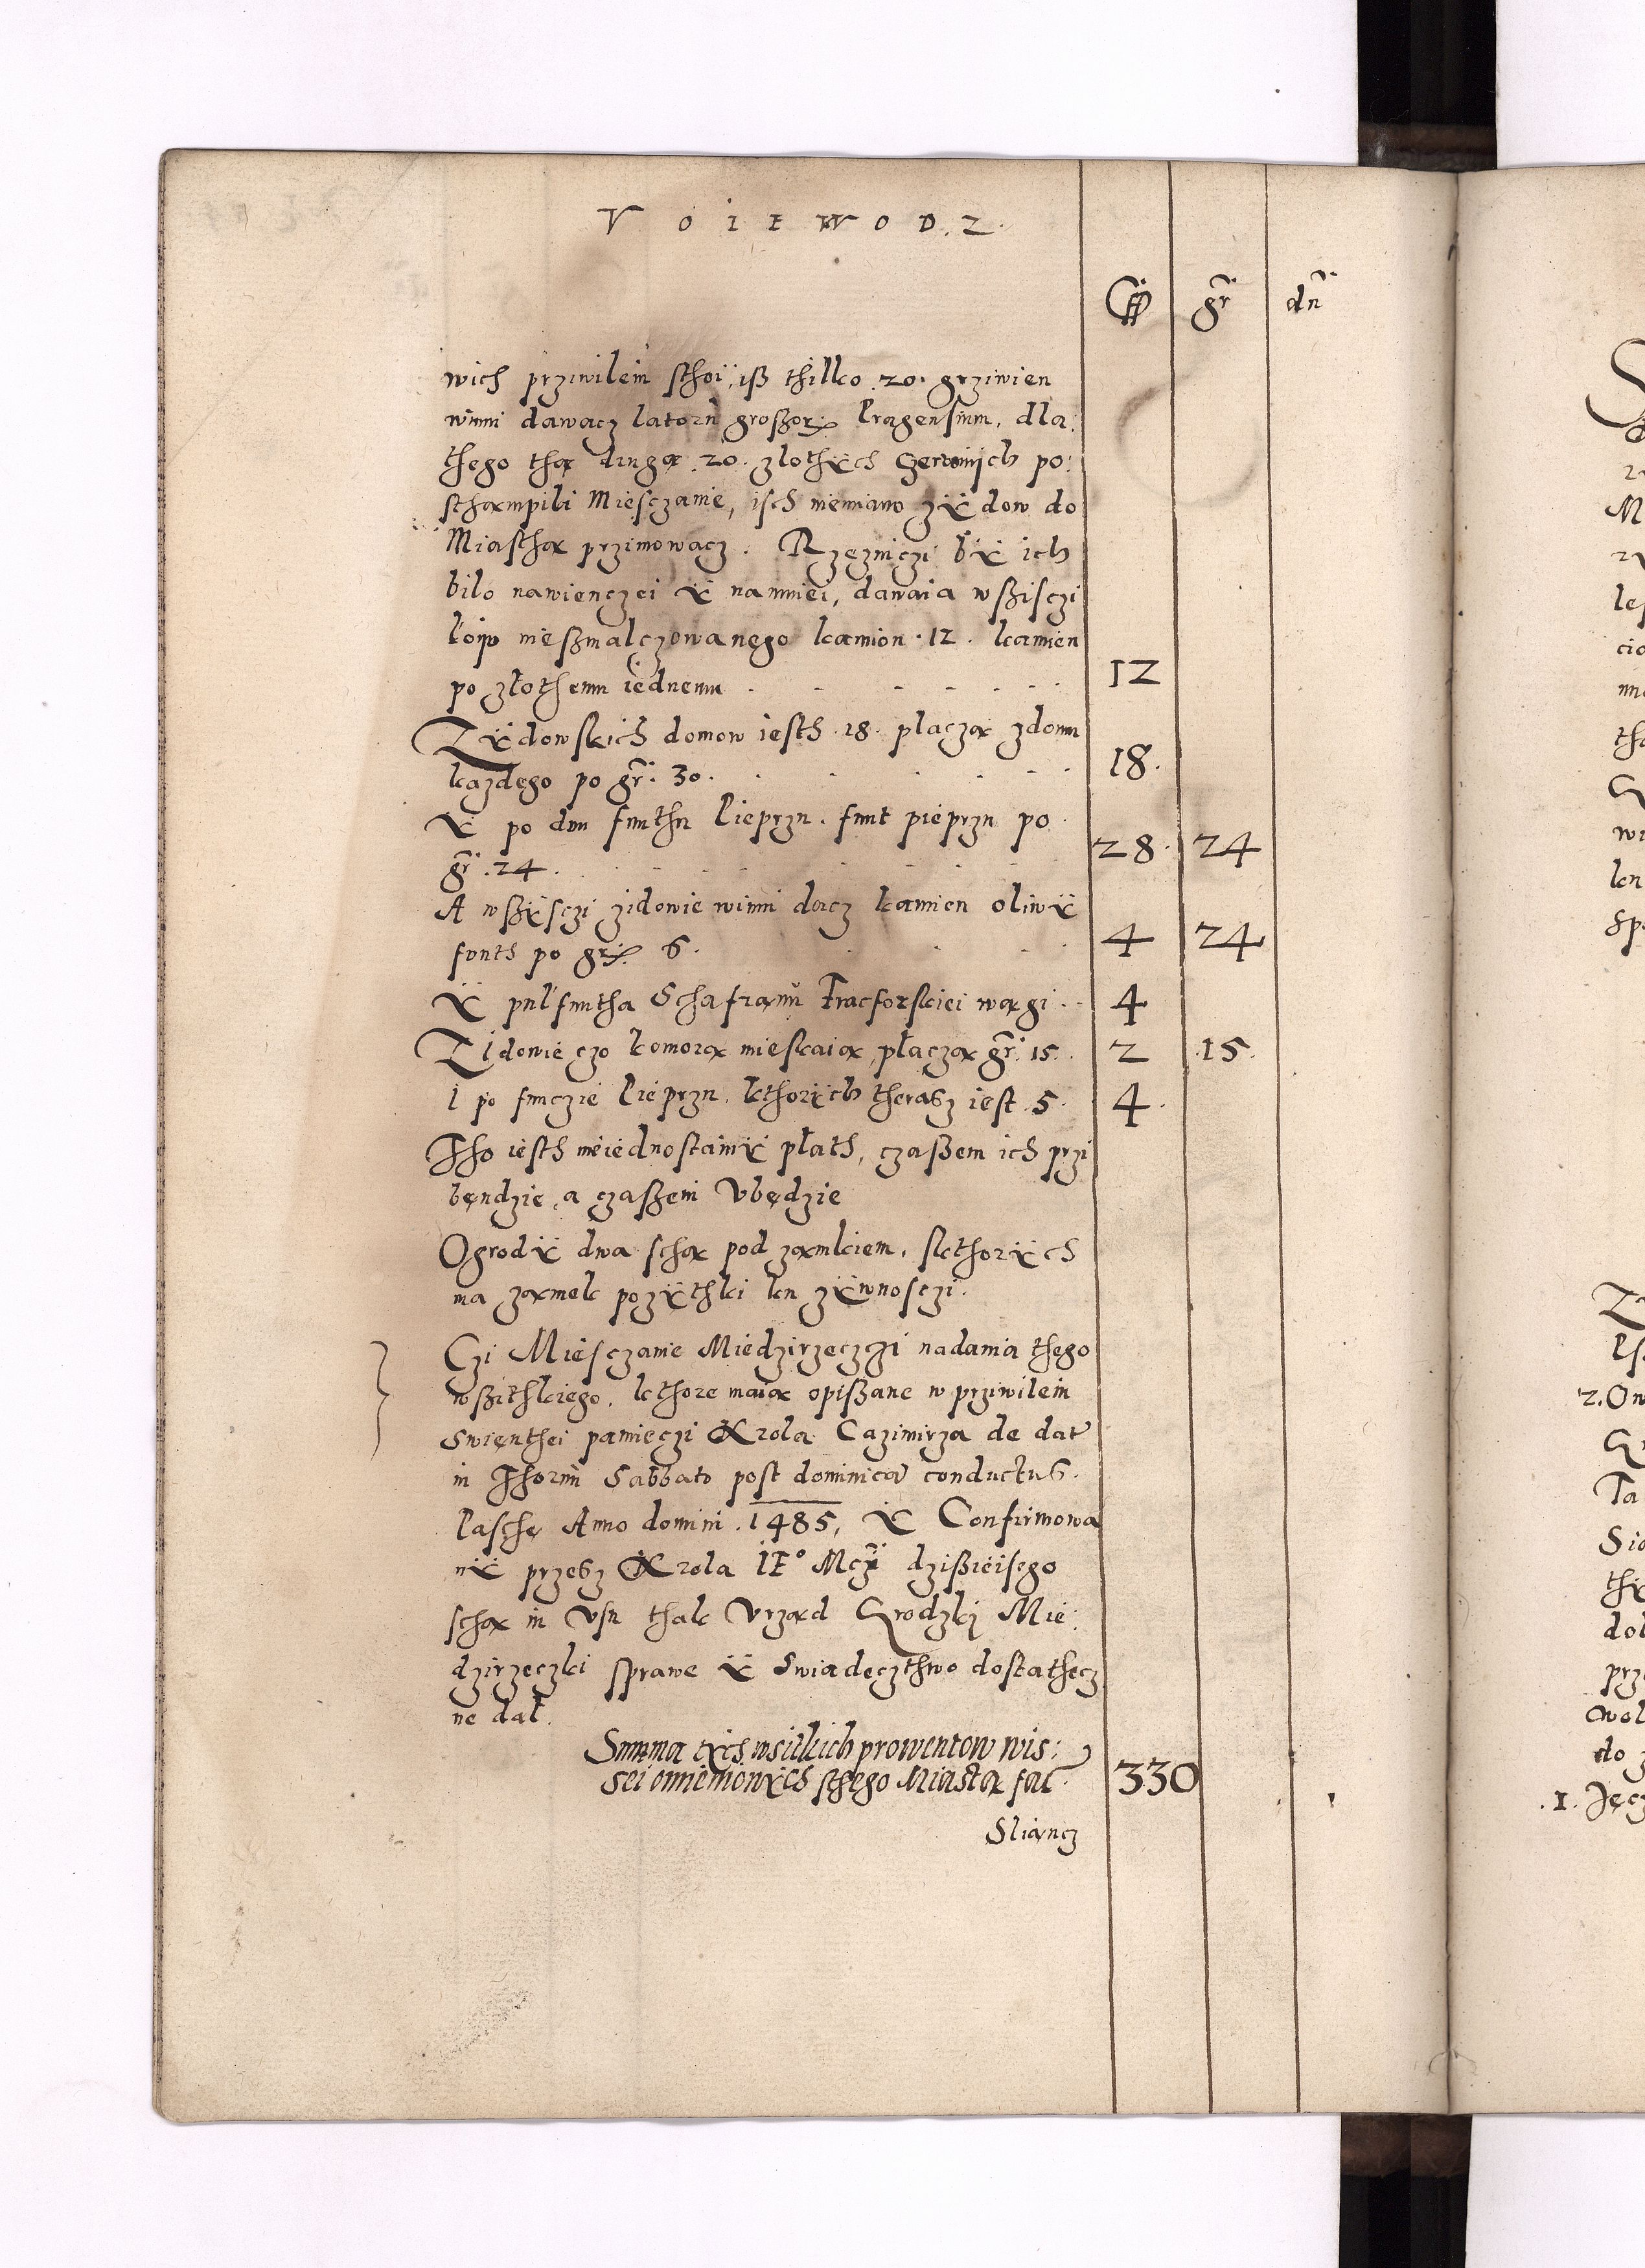 VOIEWODZ.
fl gr dn
wich prziwilein sthoi, iß thilko .20. grziwien
winni dawacz latorn großorx Pragensium, dla:
thego thą drugą .20. zlothÿch czerwonijch po:
sthąmpili Miesczanie, isch niemiano zÿdow do
Miasthą przimowacz. Rzęzniczi bÿ ich
bilo nawienczei ÿ namniei, dawaia wßisczi
łoiu nießmalczowanego kamion .12. kamien
po złothemu iednemu . - - - - - 12
Zÿdowskich domow iesth .18. placzą zdomu
kazdego po gr. 30. - - - - 18.
Ÿ po dwu funthu Pieprzu. funt pieprzu po
gr .24. - - - 28. 24
A wßÿsczi zidowie winni dacz kamien oliwÿ
funth po grx. 6. - - - 4 24
Ÿ pulfuntha Schafranu Fracforskiei wagi . . 4
Zidowie czo komorą mieskaią, płaczą gr. 15. 2 .15.
I po funczie Pieprzu. kthorÿch therasz iest .5. 4.
Tho iesth nieiednostainÿ płath, czaßem ich przi
będzie, a czaßem Vbędzie
Ogrodÿ dwa są pod zamkiem, skthorÿch
ma zamek pozÿthki ku zÿwnosczi.
Czi Miesczanie Miedzirzeczczi nadania thego
wßithkiego, kthore maią opißane w prziwilein
Swięnthei pamieczi Krola Cazimirza de dat
in Thorun Sabbato post dominicā conductus
Pasche Anno domini .1485, ÿ Confirmowa
nÿ przesz Krola IE° Mczi dzißieisego
są in Vsu thak Vrząd Grodzkj Mie:
dzirzeczki sprawe ÿ Swiadecztwo dostathecz
ne dał.
Summa tÿch wsitkich prowentow wis:
sei omienionÿch sthego Miasta fac. 330
Sliancz